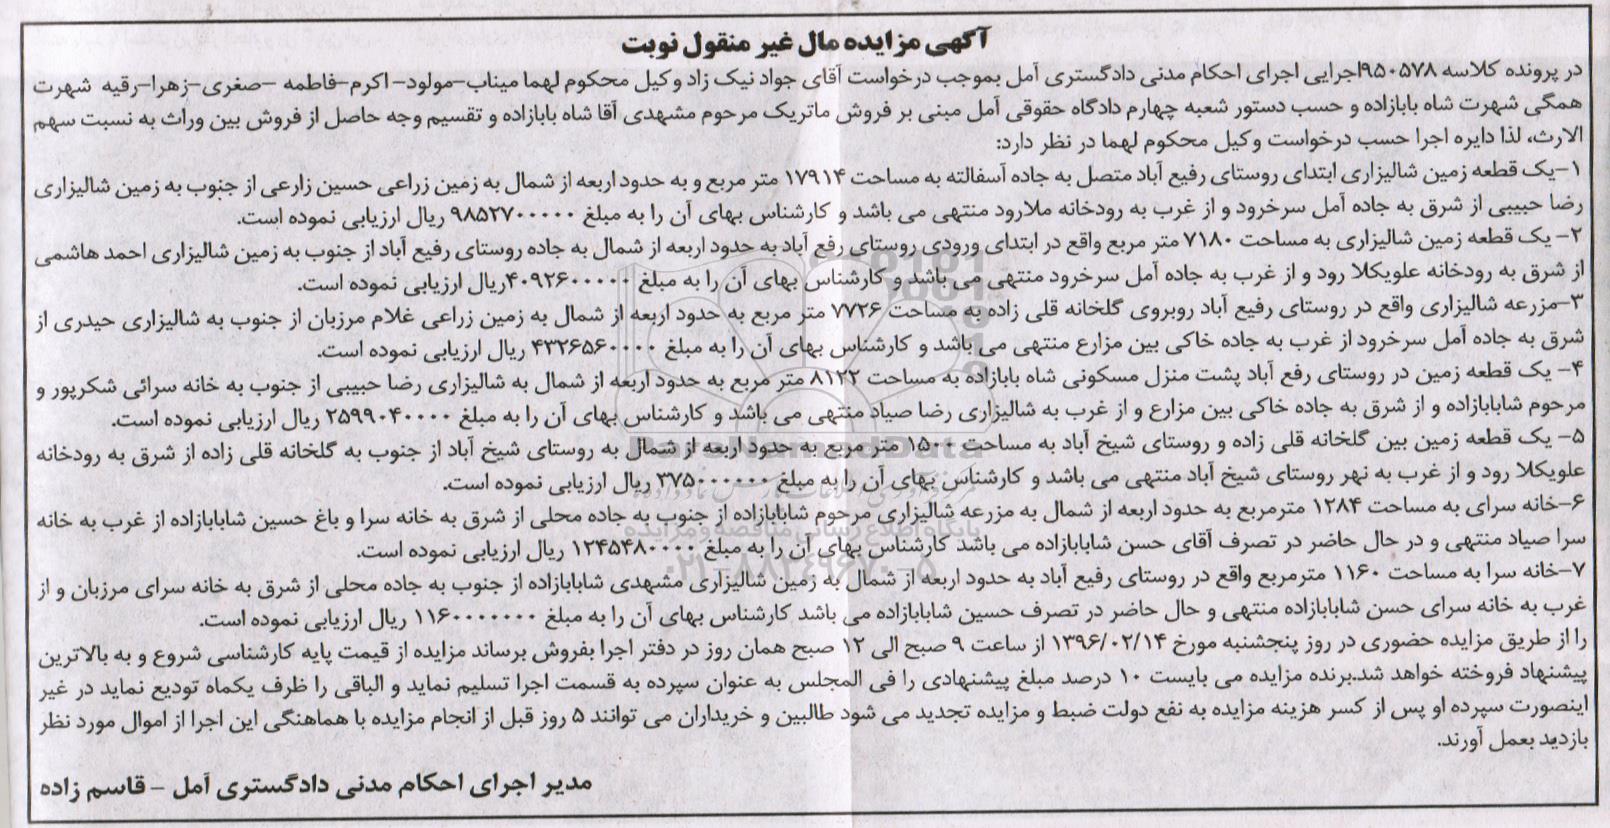 آگهی مزایده مال غیر منقول نوبت
در پرونده کلاسه ۹۵۰۵۷۸اجرایی اجرای احکام مدنی دادگستری آمل بموجب درخواست آقای جواد نیک زاد وکیل محکوم لهما میناب-مولود- اکرم-فاطمه -صغری-زهرا-رقیه شهرت
همگی شهرت شاه بابازاده و حسب دستور شعبه چهارم دادگاه حقوقی آمل مبنی بر فروش ماتریک مرحوم مشهدی آقا شاه بابازاده و تقسیم وجه حاصل از فروش بین وراث به نسبت سهم
الارث، لذا دایره اجرا حسب درخواست وکیل محکوم لهما در نظر دارد:
۱-یک قطعه زمین شالیزاری ابتدای روستای رفیع آباد متصل به جاده آسفالته به مساحت ۱۷۹۱۴ متر مربع و به حدود اربعه از شمال به زمین زراعی حسین زارعی از جنوب به زمین شالیزاری
رضا حبیبی از شرق به جاده آمل سرخرود و از غرب به رودخانه ملارود منتهی می باشد و کارشناس بهای آن را به مبلغ ۹۸۵۲۷۰۰۰۰۰ ریال ارزیابی نموده است.
۲- یک قطعه زمین شالیزاری به مساحت ۷۱۸۰ متر مربع واقع در ابتدای ورودی روستای رفع آباد به حدود اربعه از شمال به جاده روستای رفیع آباد از جنوب به زمین شالیزاری احمد هاشمی
از شرق به رودخانه علویکلا رود و از غرب به جاده آمل سرخرود منتهی می باشد و کارشناس بهای آن را به مبلغ ۴۰۹۲۶۰۰۰۰۰ریال ارزیابی نموده است.
۳-مزرعه شالیزاری واقع در روستای رفیع آباد روبروی گلخانه قلی زاده به مساحت ۷۷۲۶ متر مربع به حدود اربعه از شمال به زمین زراعی غلام مرزبان از جنوب به شالیزاری حیدری از
شرق به جاده آمل سرخرود از غرب به جاده خاکی بین مزارع منتهی می باشد و کارشناس بهای آن را به مبلغ ۴۳۲۶۵۶۰۰۰۰ ریال ارزیابی نموده است.
۴- یک قطعه زمین در روستای رفع آباد پشت منزل مسکونی شاه بابازاده به مساحت ۸۱۲۲ متر مربع به حدود اربعه از شمال به شالیزاری رضا حبیبی از جنوب به خانه سرائی شکرپور و
مرحوم شابابازاده و از شرق به جاده خاکی بین مزارع و از غرب به شالیزاری رضا صیاد منتهی می باشد و کارشناس بهای آن را به مبلغ ۲۵۹۹۰۴۰۰۰۰ ریال ارزیابی نموده است.
۵- یک قطعه زمین بین گلخانه قلی زاده و روستای شیخ آباد به مساحت ۱۵۰۰ متر مربع به حدود اربعه از شمال به روستای شیخ آباد از جنوب به گلخانه قلی زاده از شرق به رودخانه
علویکلا رود و از غرب به نهر روستای شیخ آباد منتهی می باشد و کارشناس بهای آن را به مبلغ ۳۷۵۰۰۰۰۰۰ ریال ارزیابی نموده است.
۶-خانه سرای به مساحت ۱۲۸۴ مترمربع به حدود اربعه از شمال به مزرعه شالیزاری مرحوم شابابازاده از جنوب به جاده محلی از شرق به خانه سرا و باغ حسین شابابازاده از غرب به خانه
سرا صیاد منتهی و در حال حاضر در تصرف آقای حسن شابابازاده می باشد کارشناس بهای آن را به مبلغ ۱۲۴۵۴۸۰۰۰۰ ریال ارزیابی نموده است.
۷-خانه سرا به مساحت ۱۱۶۰ مترمربع واقع در روستای رفیع آباد به حدود اربعه از شمال به زمین شالیزاری مشهدی شابابازاده از جنوب به جاده محلی از شرق به خانه سرای مرزبان و از
غرب به خانه سرای حسن شابابازاده منتهی و حال حاضر در تصرف حسین شابابازاده می باشد کارشناس بهای آن را به مبلغ ۱۱۶۰۰۰۰۰۰۰ ریال ارزیابی نموده است.
را از طریق مزایده حضوری در روز پنجشنبه مورخ ۱۳۹۶/۰۲/۱۴ از ساعت ۹ صبح الی ۱۲ صبح همان روز در دفتر اجرا بفروش برساند مزایده از قیمت پایه کارشناسی شروع و به بالاترین
پیشنهاد فروخته خواهد شد.برنده مزایده می بایست ۱۰ درصد مبلغ پیشنهادی را فی المجلس به عنوان سپرده به قسمت اجرا تسلیم نماید و الباقی را ظرف یکماه تودیع نماید در غیر
اینصورت سپرده او پس از کسر هزینه مزایده به نفع دولت ضبط و مزایده تجدید می شود طالبین و خریداران می توانند ۵ روز قبل از انجام مزایده با هماهنگی این اجرا از اموال مورد نظر
بازدید بعمل آورند.
مدیر اجرای احکام مدنی دادگستری آمل - قاسم زاده
پایگاه اطلاع رسانی مناقصه و مزایده
۰۲۱-۸۸۳۴۹۶۷۰-۵